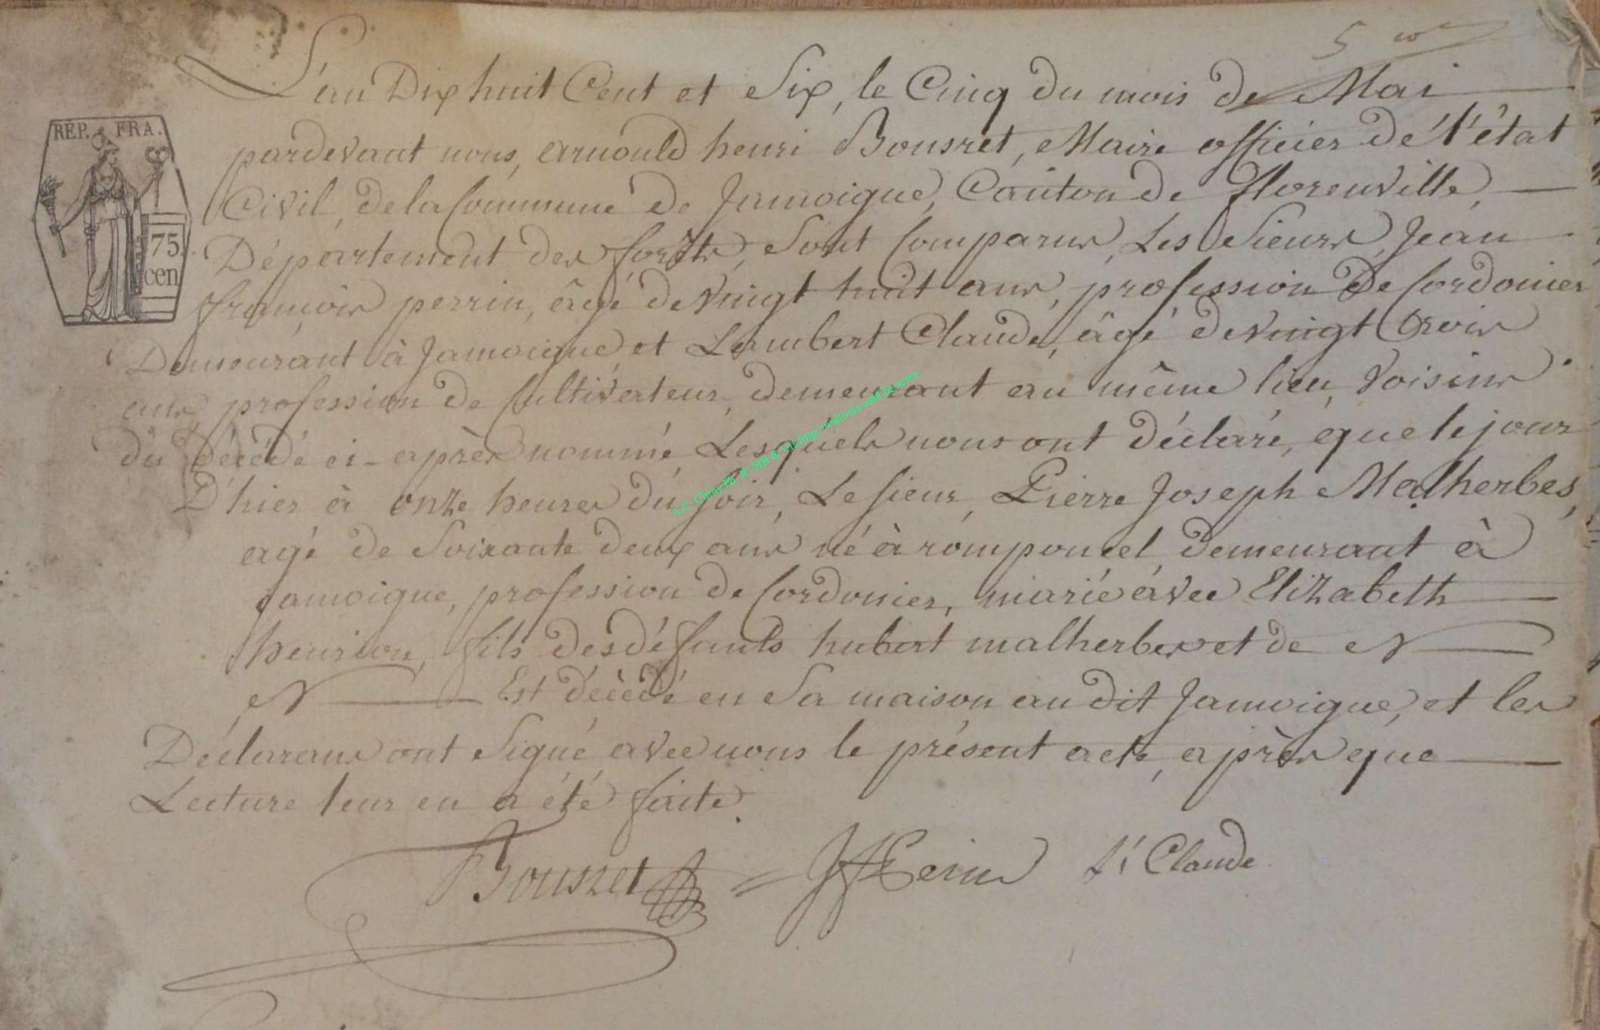 5 me
L'an Dix huit Cent et Six, le Cinq du mois de Mai
pardevant nous, arnould henri Bousret, Maire officier de l'état
Civil, de la Commune de Jamoigne, Canton de florenville,
Département des forêts, sont Comparus, Les Sieurs Jean
françois perrin, âgé de vingt huit ans, profession De Cordonier
Demeurant à Jamoigne et Lambert Claude, âgé de vingt trois
ans profession de Cultivateur, demeurant au même lieu, Voisins
du Décédé ci-après nommé Lesquels nous ont déclaré, que le jour
D'hier à onze heures du soir, Le sieur, Pierre Joseph Malherbes,
agé de Soixante deux ans né à romponcel, demeurant à
Jamoigne, profession de Cordonier, marié avec Elizabeth
henrion, fils des défunts hubert malherbes et de N
N Est décédé en Sa maison au dit Jamoigne, et les
Déclarans ont Signé avec nous le présent acte, après que
Lecture leur en a été faite.
REP. FRA.
75
cen
Bousret JfPerin Lt Claude